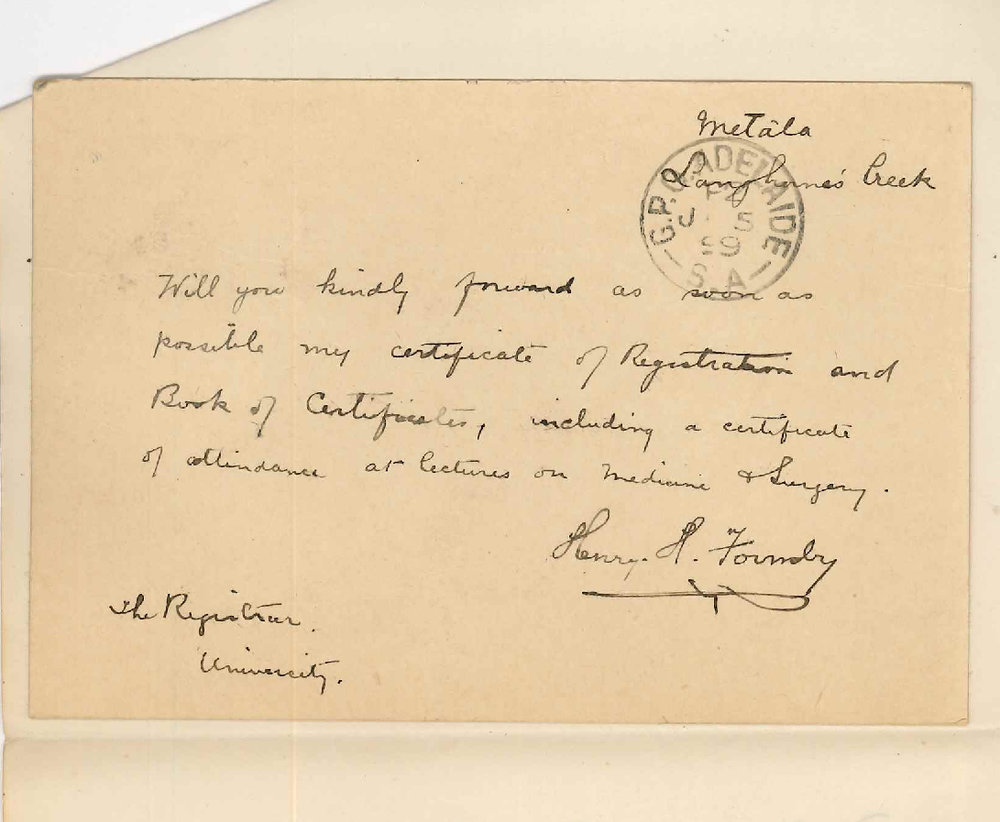 Metala
Langhorne's Creek
G.P.O. ADELAIDE
J 5
99
S.A
Will you kindly forward as soon as
possible my certificate of Registration and
Book of Certificates, including a certificate
of attendance at lectures on Medicine & Surgery.
Henry H. Formby
The Registrar.
University.